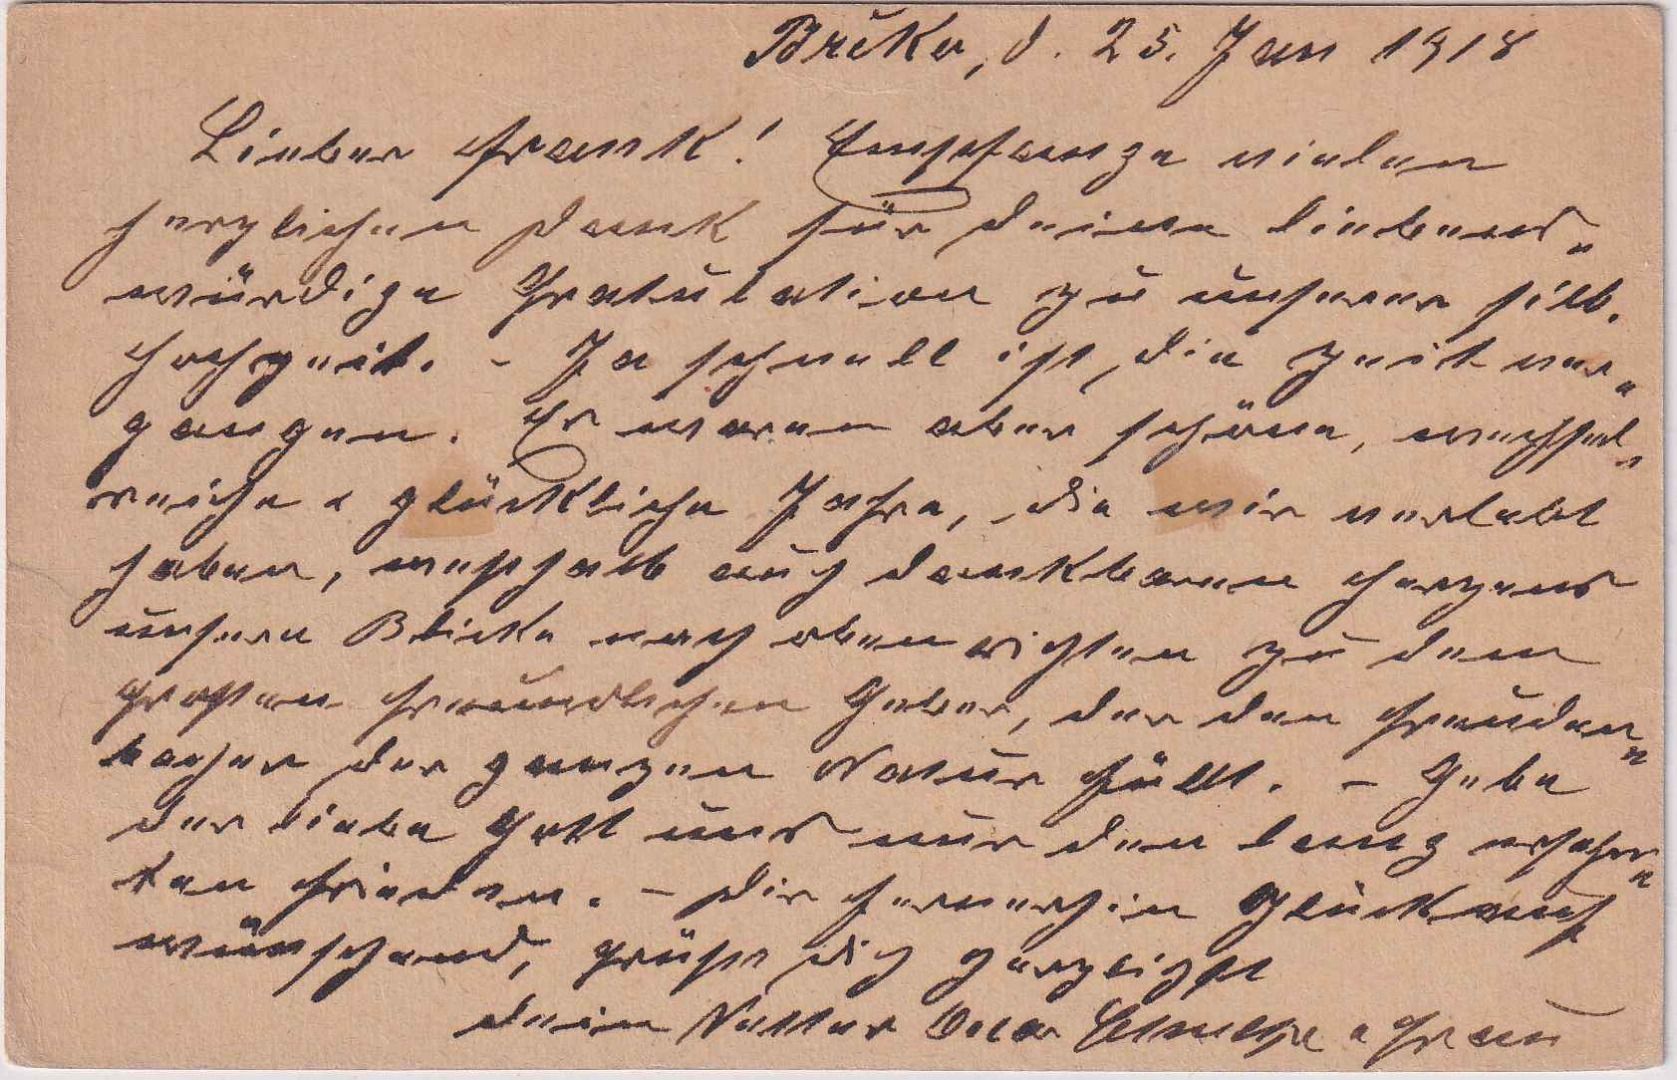 Brčko, d. 25. Jan 1918
Lieber Frank! Empfange vielen
herzlichen Dank für deine liebens„
würdige Gratulation zu unserer silb.
Hochzeit. - Ja schnell ist, die Zeit ver„
gangen. Es waren aber schöne, wechsel„
reiche & glückliche Jahre, die wir verlebt
haben, weshalb auch dankbaren Herzens
unsere Blicke nach oben richten zu dem
großen freundlichen Geber, der den Freuden„
becher der ganzen Natur füllt. - Gebe
der liebe Gott uns nur den lang ersehn„
ten Frieden. - Dir fernerhin Glück auf
wünschend, grüßt dich herzlichst
dein Vetter & Frau